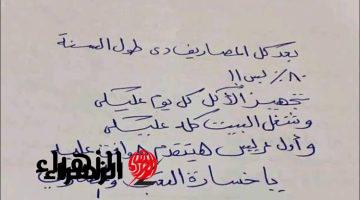 بعد كل المصاريف دى طول السنة
٨٠٪ بس !!
تجهيز الأكل كل يوم عليكى
وشغل البيت كله عليكى
وأول عريس هيتقدم هوافق عليه
يا خسارة
الزهراء